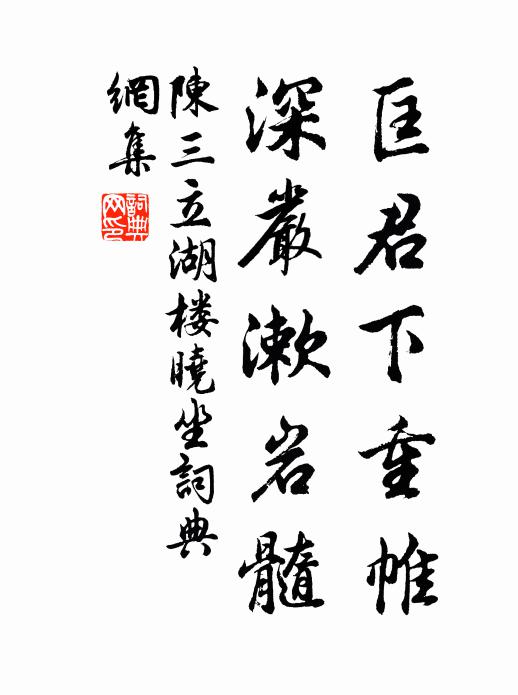 匡君下重帷
深嚴漱岩髓
陳三立湖楼曉坐詞典
網集
詞典网印